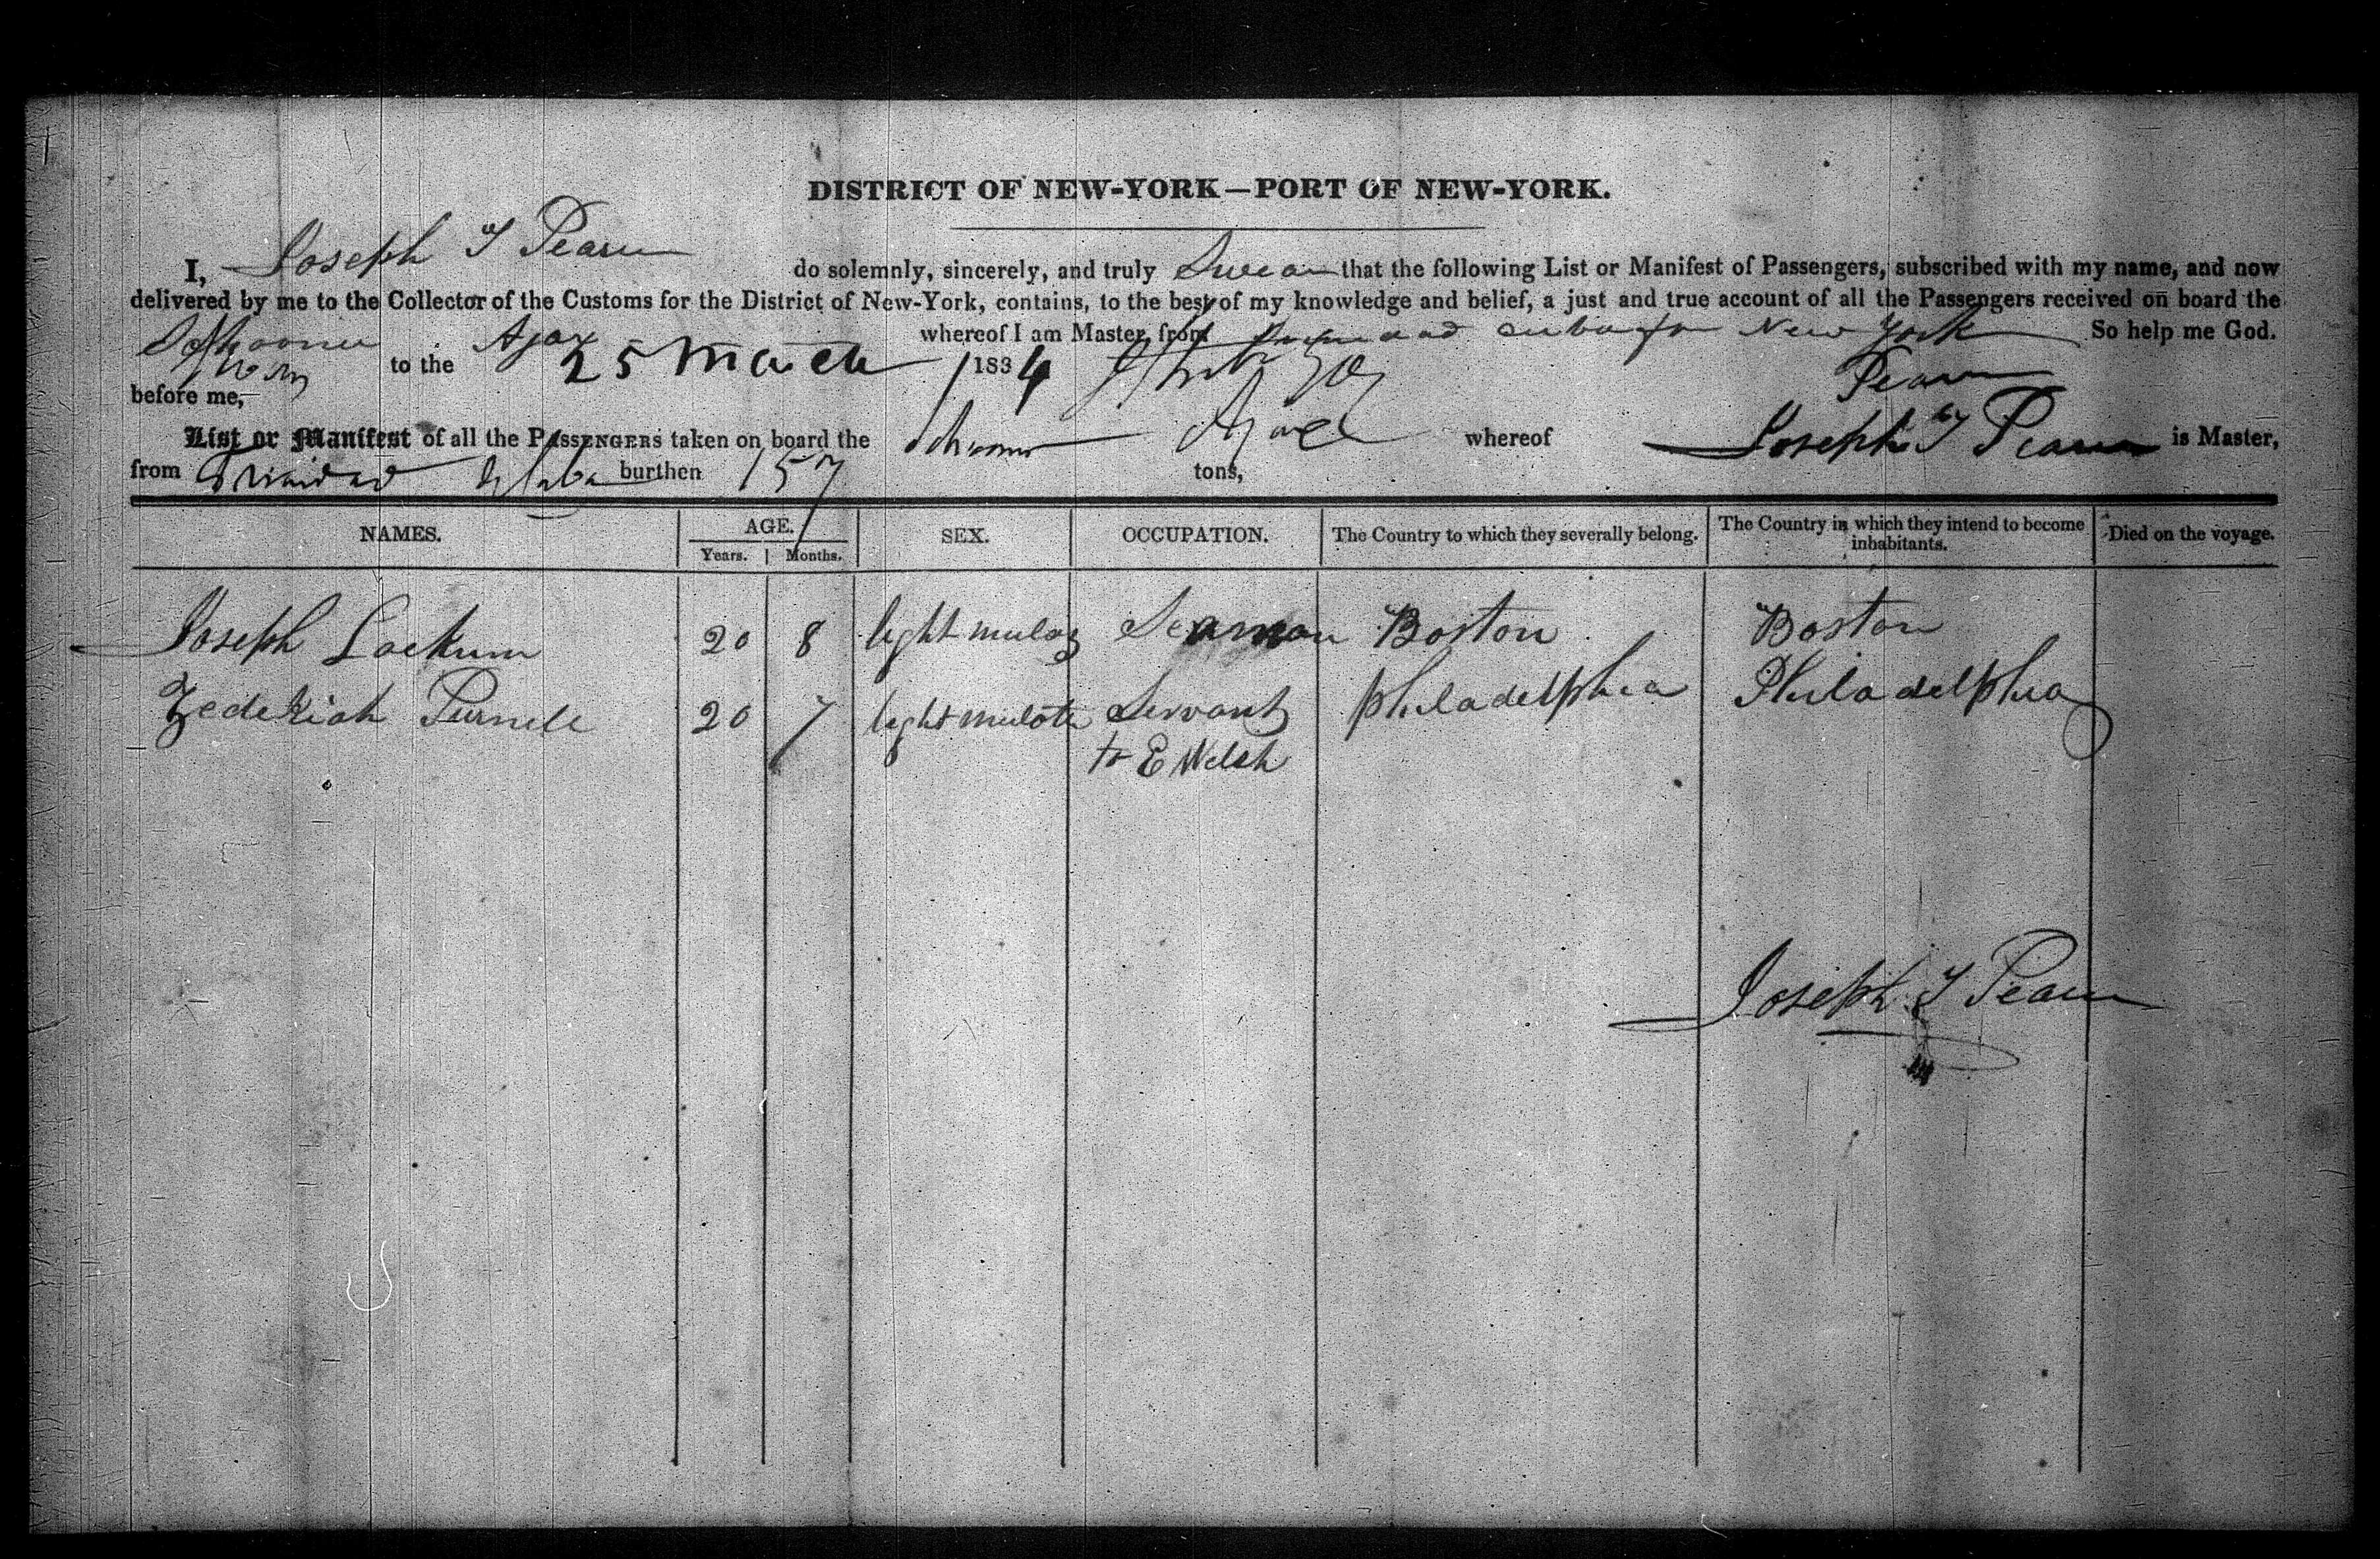 DISTRICT OF NEW-YORK—PORT OF NEW-YORK.
I, Joseph T Pearson do solemnly, sincerely, and truly Swear that the following List or Manifest of Passengers, subscribed with my name, and now
delivered by me to the Collector of the Customs for the District of New-York, contains, to the best of my knowledge and belief, a just and true account of all the Passengers received on board the
Schooner Ajax whereof I am Master, from Trinidad cuba for New York So help me God.
Sworn to the 25 March 1834
before me, Pearson
List or Manifest of all the PASSENGERS taken on board the Schooner Ajax whereof Joseph T Pearson is Master,
from Trinidad burthen 157 tons,
NAMES. AGE. SEX. OCCUPATION. The Country to which they severally belong. The Country in which they intend to become inhabitants. Died on the voyage.
Years. Months.
Joseph Lockum 20 8 light mulato Seaman Boston Boston
Zedekiah Purnell 20 7 light mulato Servant Philadelphia Philadelphia
to E Welsh
Joseph T Pearson